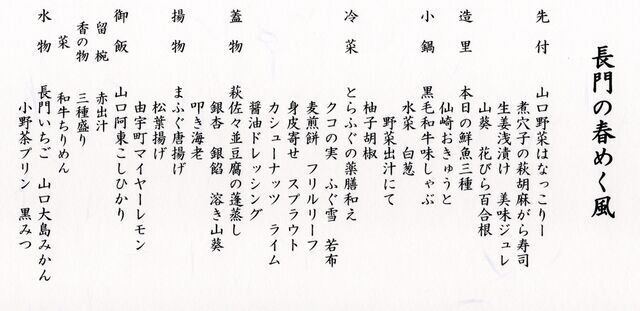 長門の春めく風
先付
山口野菜はなっこりー
煮穴子の萩胡麻がら寿司
生姜浅漬け 美味ジュレ
山葵 花びら百合根
造里
本日の鮮魚三種
仙崎おきゅうと
小鍋
黒毛和牛味しゃぶ
水菜 白葱
野菜出汁にて
柚子胡椒
冷菜
とらふぐの薬膳和え
クコの実 ふぐ雪 若布
麦煎餅 フリルリーフ
身皮寄せ スプラウト
カシューナッツ ライム
醤油ドレッシング
蓋物
萩佐々並豆腐の蓬蒸し
銀杏 銀餡 溶き山葵
叩き海老
揚物
まふぐ唐揚げ
松葉揚げ
由宇町マイヤーレモン
御飯
山口阿東こしひかり
留椀
赤出汁
香の物
三種盛り
菜
和牛ちりめん
水物
長門いちご 山口大島みかん
小野茶プリン 黒みつ